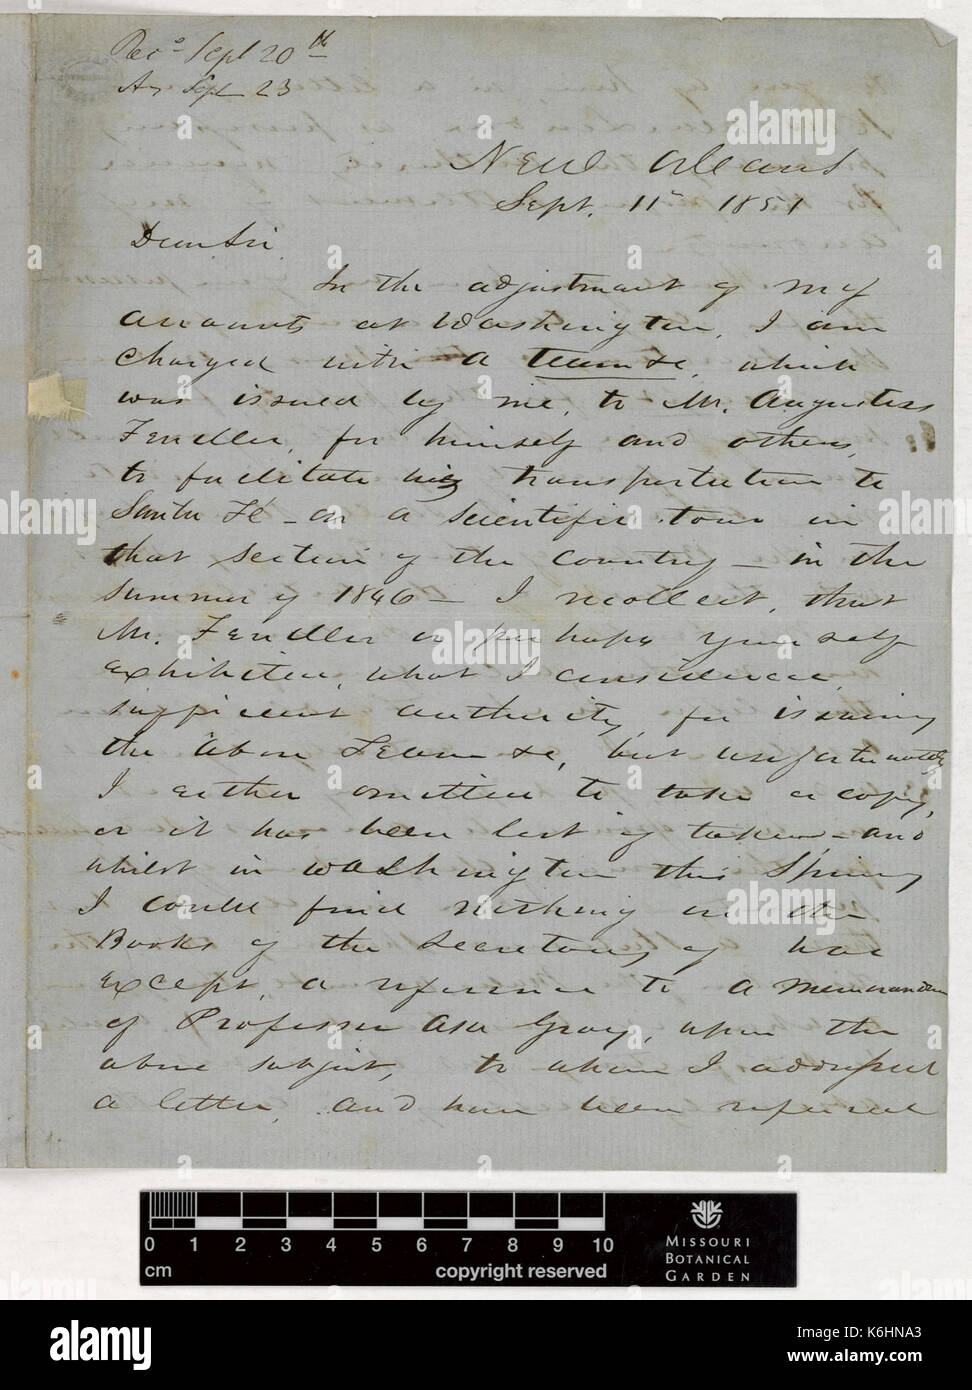 Recd Sept 20th
As Sept 23
New Orleans
Sept. 11th 1851
Dear Sir
In the adjustment of my
accounts at Washington, I am
charged with a team &c, which
was issued by me, to Mr. Augustus
Fendler, for himself and others,
to facilitate his transportation to
Santa Fé - on a scientific tour in
that section of the country - in the
summer of 1846 - I recollect, that
Mr. Fendler or perhaps yourself
exhibited, what I considered
sufficient authority for issuing
the above Team &c, but unfortunately
I either omitted to take a copy,
or it has been lost if taken, - and
whilst in Washington this Spring
I could find nothing in the
Books of the Secretary of War
except, a reference to a memorandum
of Professor Asa Gray, upon the
above subject, to whom I addressed
a letter, and have been referred
0 1 2 3 4 5 6 7 8 9 10
cm
copyright reserved
MISSOURI
BOTANICAL
GARDEN
alamy
alamy stock photo
K6HNA3
www.alamy.com